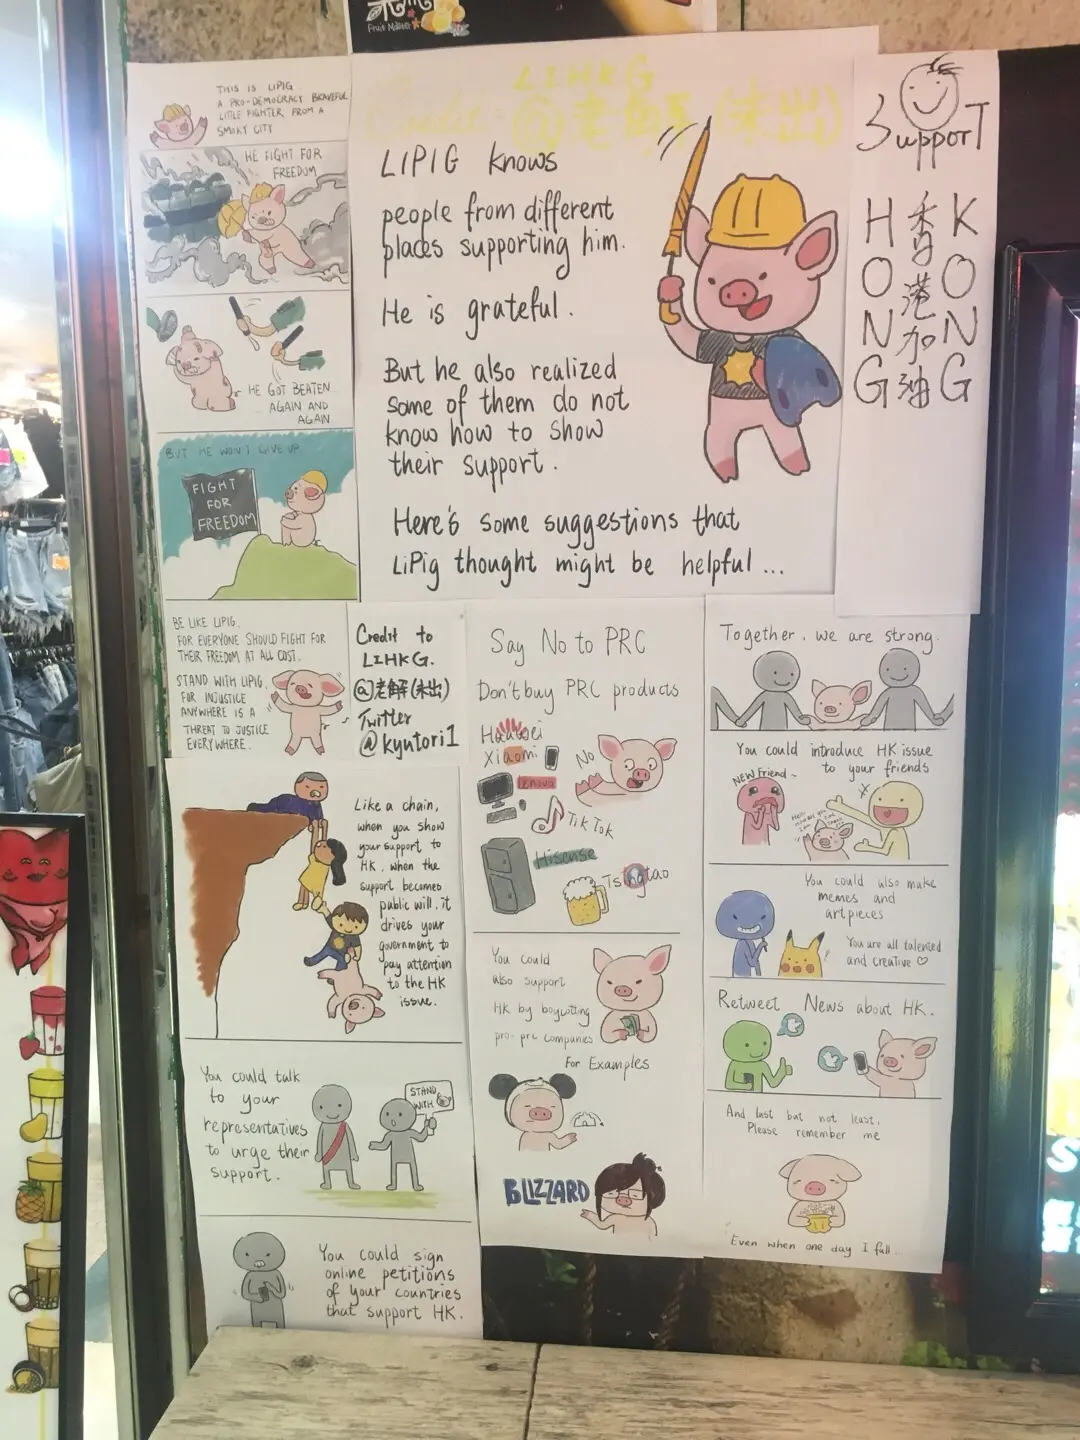 Fruit Nation
THIS IS LIPIG
A PRO-DEMOCRACY BRAVEFUL
LITTLE FIGHTER, FROM A
SMOKY CITY
HE FIGHT FOR
FREEDOM
HE GOT BEATEN
AGAIN AND
AGAIN
BUT HE WON'T GIVE UP.
FIGHT
FOR
FREEDOM
BE LIKE LIPIG.
FOR EVERYONE SHOULD FIGHT FOR
THEIR FREEDOM AT ALL COST.
STAND WITH LIPIG
FOR INJUSTICE
ANYWHERE IS A
THREAT TO JUSTICE
EVERYWHERE.
Credit LIHKG
@老解(未出)
LIPIG knows
people from different
places supporting him.
He is grateful.
But he also realized
some of them do not
know how to show
their support.
Here's some suggestions that
LiPig thought might be helpful...
Support
HONG
香港加油
KONG
Credit to
LIHKG.
@老解(未出)
Twitter
@kyutori1
Like a chain,
when you show
your support to
HK, when the
support becomes
public will, it
drives your
government to
pay attention
to the HK
issue.
You could talk
to your
representatives
to urge their
support.
STAND
WITH
You could sign
online petitions
of your countries
that support HK.
Say No to PRC
Don't buy PRC products
Huawei
Xiaomi
NO
lenovo
TikTok
Hisense
Tsingtao
You could
also support
HK by boycotting
pro-prc companies
For Examples
BLIZZARD
Together, we are strong.
You could introduce HK issue
to your friends
NEW Friend~
You could also make
memes and
artpieces
You are all talented
and creative ♡
Retweet News about HK.
And last but not least,
Please remember me
Even when one day I fall...